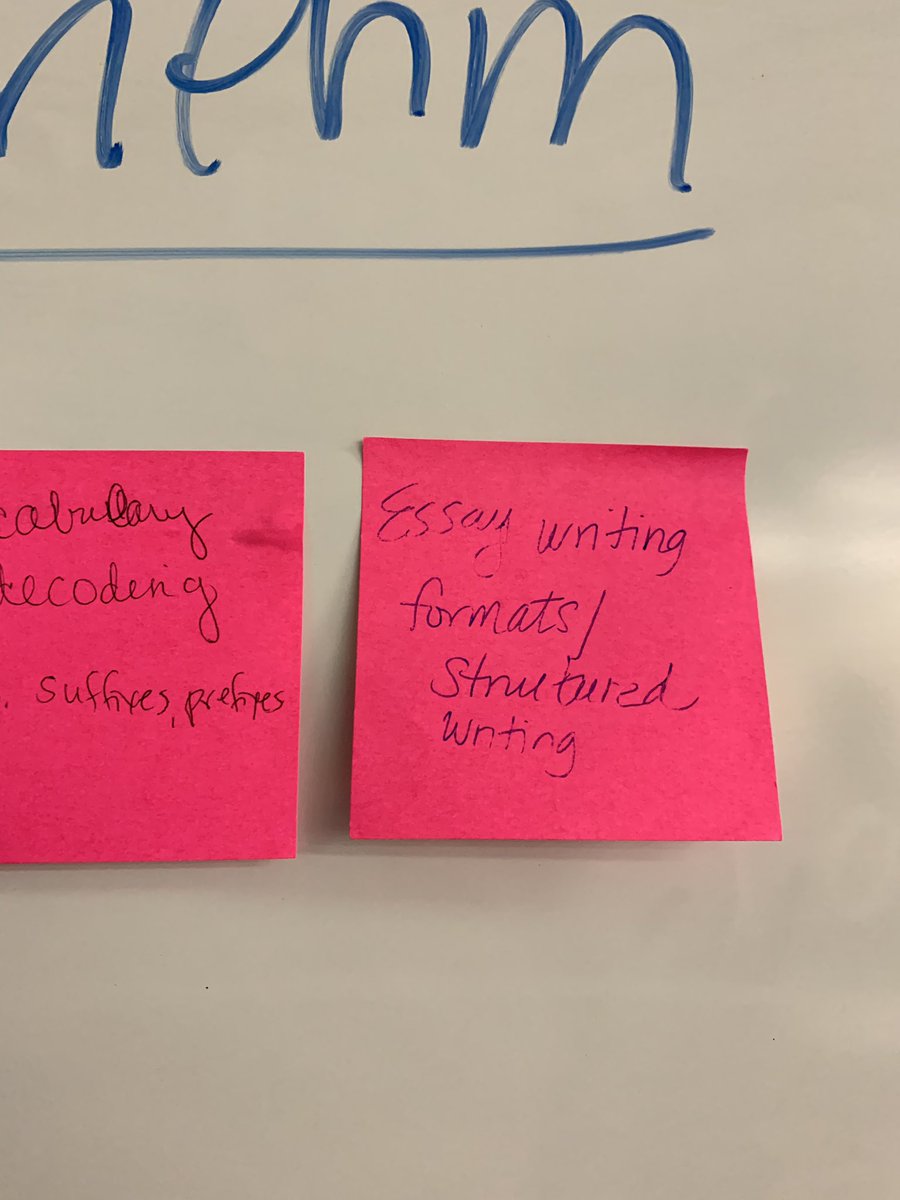 cabulary
decoding
. suffixes, prefixes
Essay writing
formats/
structured
writing